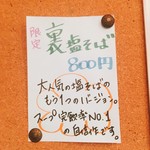 限定
裏塩そば
800円
大人気の塩そばの
もう1つのバージョン。
スープ完飲率No.1
の自信作です。